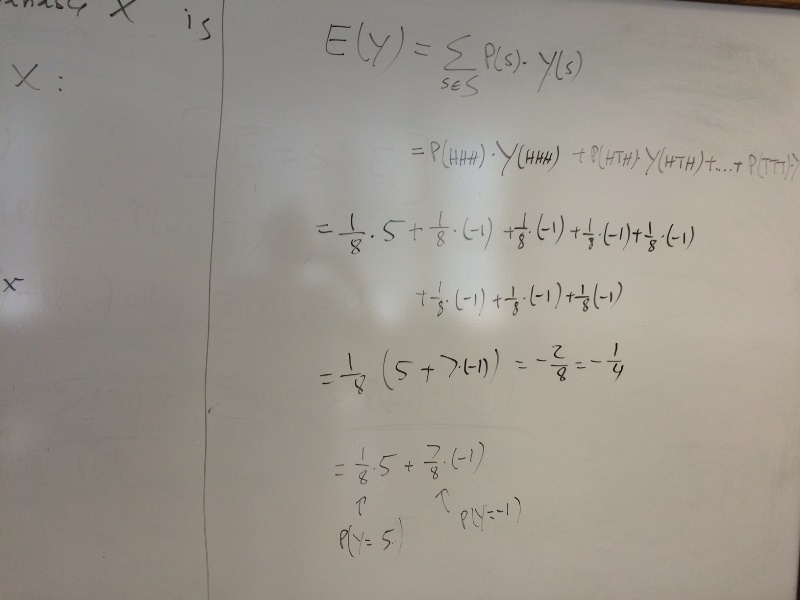 X is
X:
x
E(Y) = ∑ P(s)· Y(s)
s∈S
= P(HHH)·Y(HHH) + P(HTH)·Y(HTH)+....+ P(TTT)·Y
= 1/8 · 5 + 1/8 · (-1) + 1/8 · (-1) + 1/8 · (-1) + 1/8 · (-1)
+ 1/8 · (-1) + 1/8 · (-1) + 1/8 (-1)
= 1/8 (5 + 7·(-1)) = -2/8 = -1/4
= 1/8 · 5 + 7/8 · (-1)
↑ ↑
P(Y=5) P(Y=-1)